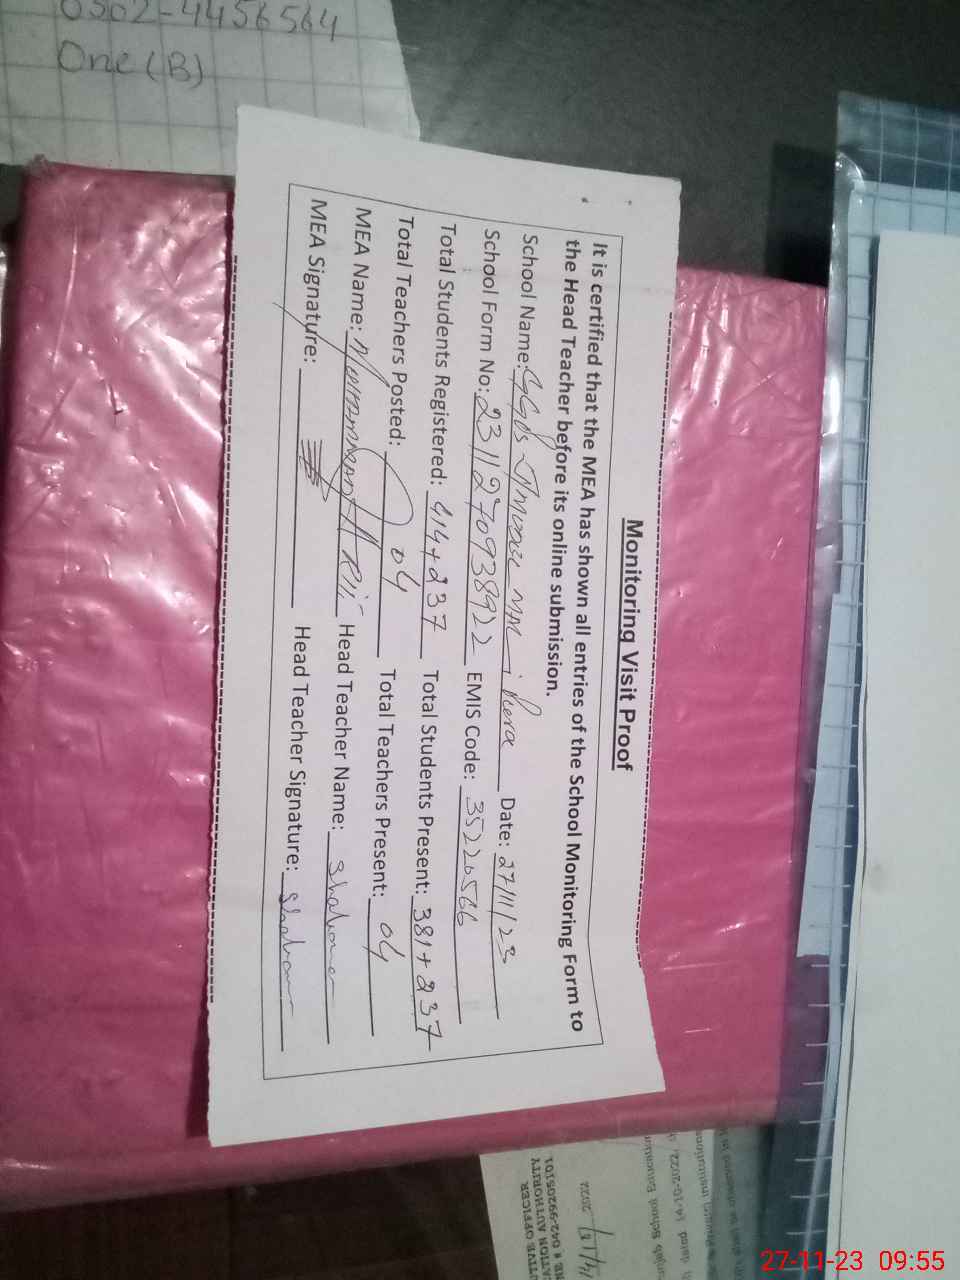 0302-4456564
One (B)
Monitoring Visit Proof
It is certified that the MEA has shown all entries of the School Monitoring Form to
the Head Teacher before its online submission.
School Name: Date: 27/11/23
School Form No: 2311270938922 EMIS Code: 35220566
Total Students Registered: 414+237 Total Students Present: 381+237
Total Teachers Posted: 04 Total Teachers Present: 04
MEA Name: Muhammad Head Teacher Name:
MEA Signature: Head Teacher Signature:
School Education
dated 14-10-2022
2022
042-99205101
ATION AUTHORITY
TIVE OFFICER
27-11-23 09:55